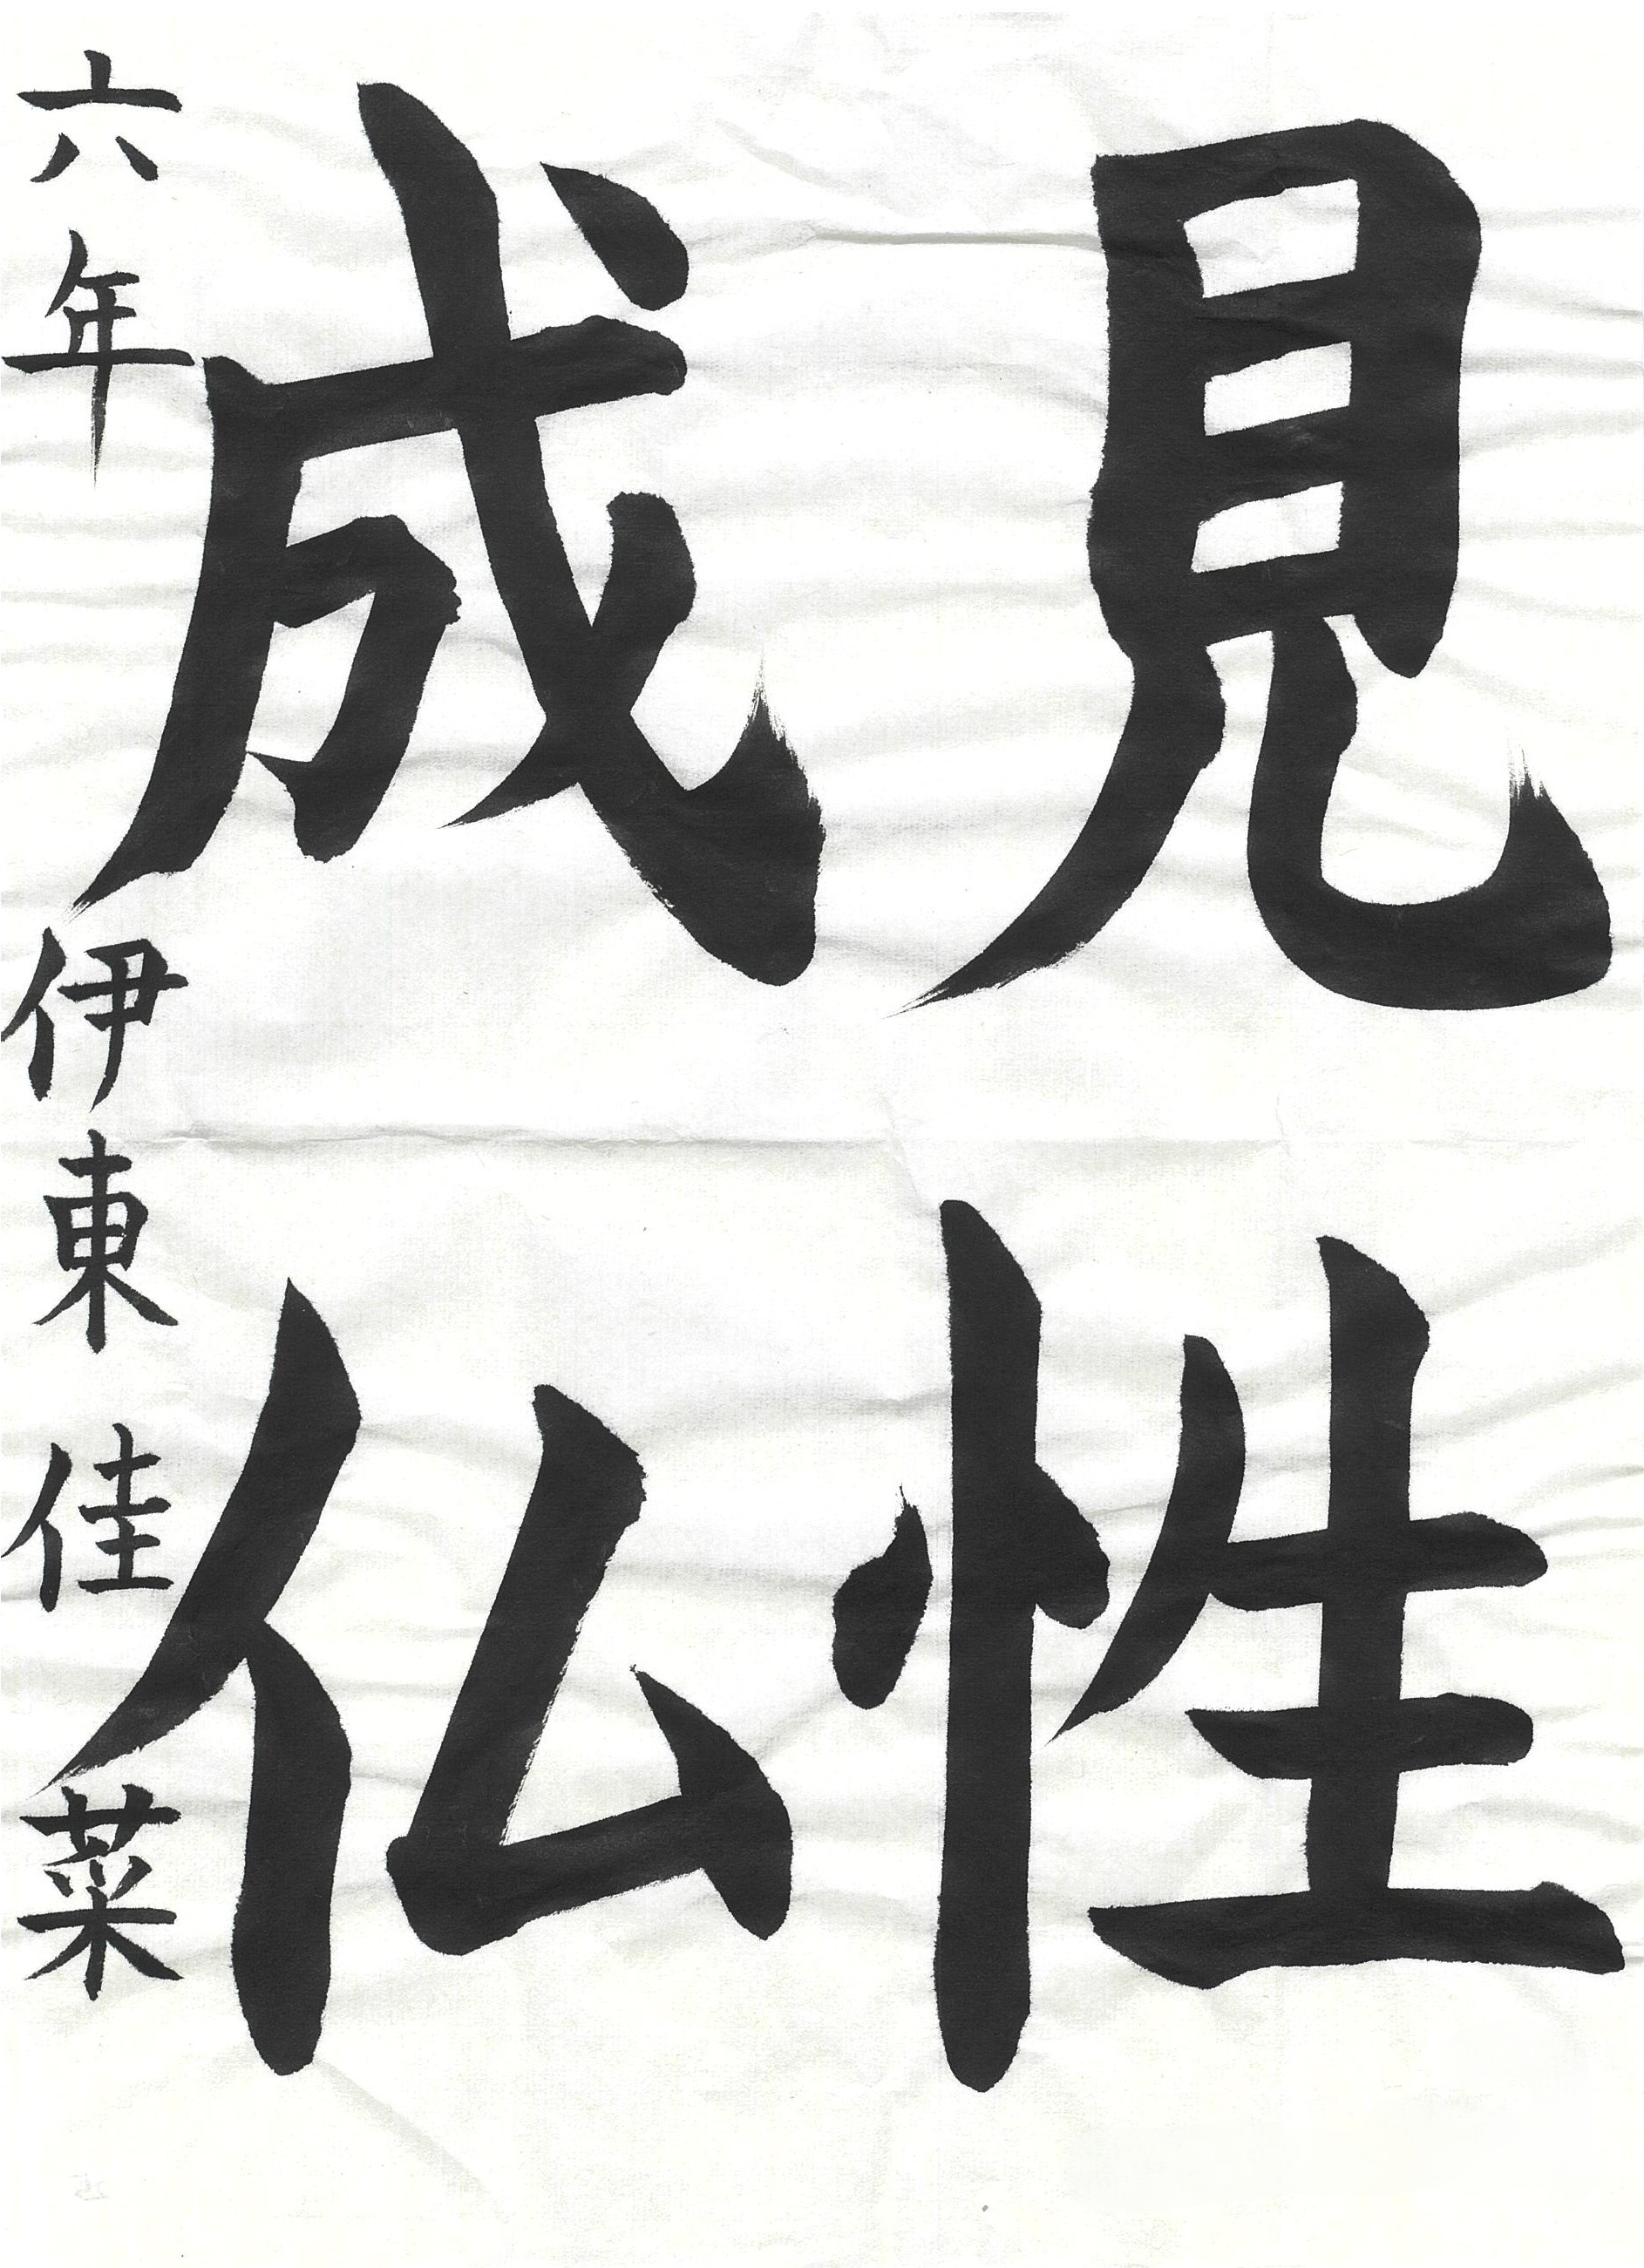 見性
成仏
六年 伊東佳菜